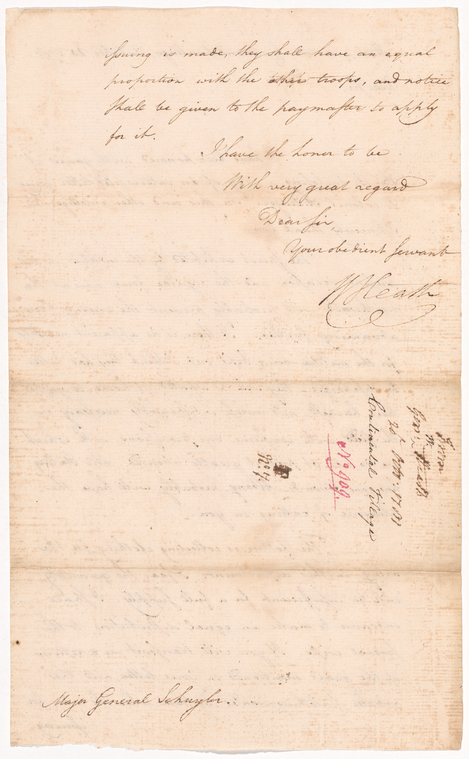 issuing is made, they shall have an equal
proportion with the other troops, and notice
shall be given to the paymaster to apply
for it.
I have the honor to be
With very great regard
Dear Sir,
Your obedient Servant
W Heath
From
Genl Heath
Octr. 1781
Continental Village
No 909
No. 7.
Major General Schuyler.